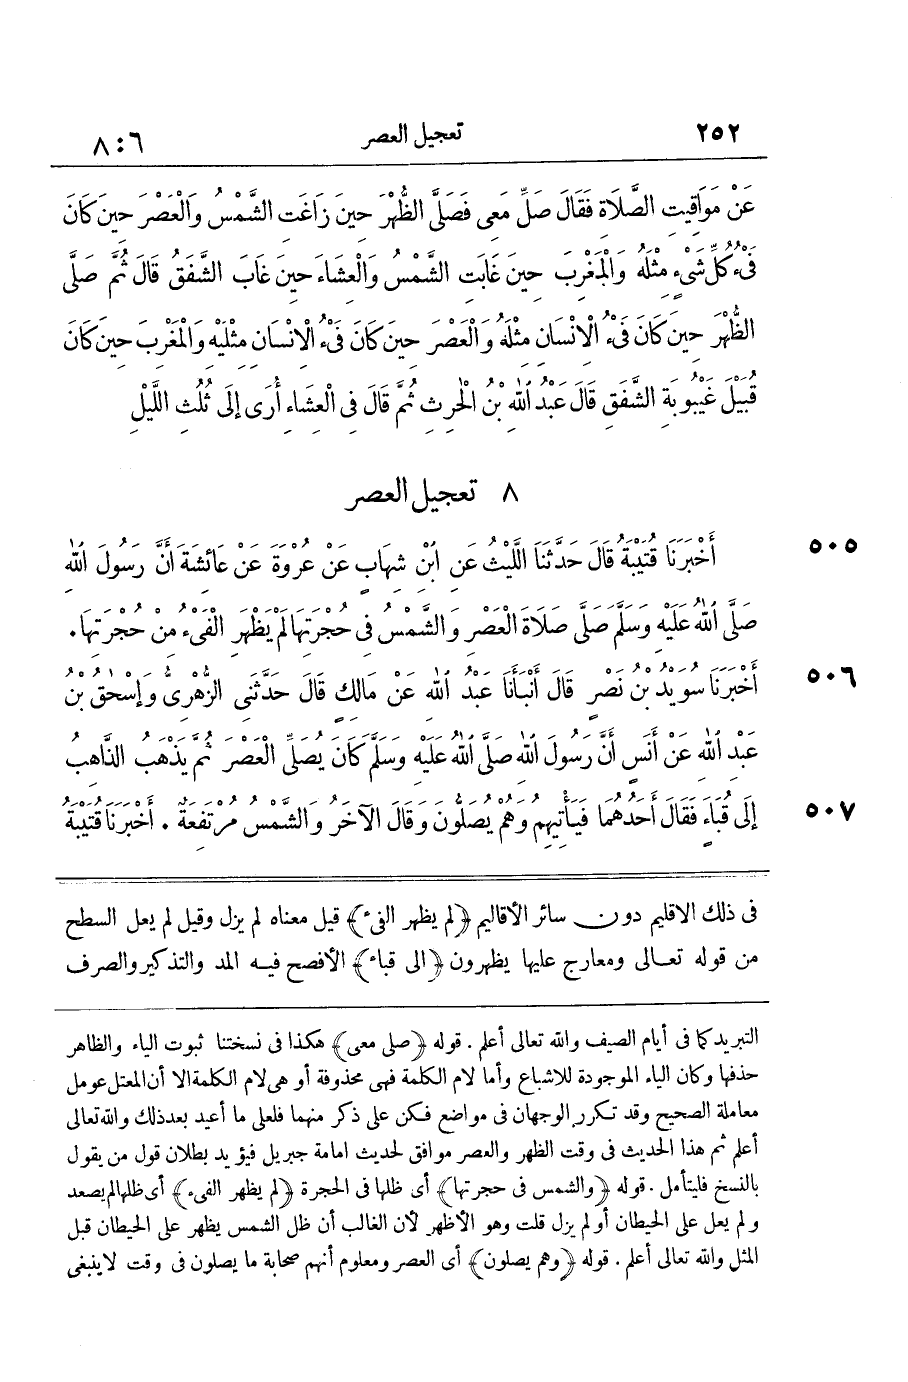 ٢٥٢ تعجيل العصر ٦ : ٨
عَنْ مَوَاقِيتِ الصَّلَاةِ فَقَالَ صَلِّ مَعِى فَصَلَّى الظُّهْرَ حِينَ زَاغَتِ الشَّمْسُ وَالْعَصْرَ حِينَ كَانَ
فَىْءُ كُلِّ شَىْءٍ مِثْلَهُ وَالْمَغْرِبَ حِينَ غَابَتِ الشَّمْسُ وَالْعِشَاءَ حِينَ غَابَ الشَّفَقُ قَالَ ثُمَّ صَلَّى
الظُّهْرَ حِينَ كَانَ فَىْءُ الْإِنْسَانِ مِثْلَهُ وَالْعَصْرَ حِينَ كَانَ فَىْءُ الْإِنْسَانِ مِثْلَيْهِ وَالْمَغْرِبَ حِينَ كَانَ
قُبَيْلَ غَيْبُوبَةِ الشَّفَقِ قَالَ عَبْدُ اللهِ بْنُ الْحٰرِثِ ثُمَّ قَالَ فِى الْعِشَاءِ أُرَى إِلَى ثُلُثِ اللَّيْلِ
٨ تعجيل العصر
٥٠٥ أَخْبَرَنَا قُتَيْبَةُ قَالَ حَدَّثَنَا اللَّيْثُ عَنِ ابْنِ شِهَابٍ عَنْ عُرْوَةَ عَنْ عَائِشَةَ أَنَّ رَسُولَ اللهِ
صَلَّى اللهُ عَلَيْهِ وَسَلَّمَ صَلَّى صَلَاةَ الْعَصْرِ وَالشَّمْسُ فِى حُجْرَتِهَا لَمْ يَظْهَرِ الْفَىْءُ مِنْ حُجْرَتِهَا .
٥٠٦ أَخْبَرَنَا سُوَيْدُ بْنُ نَصْرٍ قَالَ أَنْبَأَنَا عَبْدُ اللهِ عَنْ مَالِكٍ قَالَ حَدَّثَنِى الزُّهْرِىُّ وَإِسْحٰقُ بْنُ
عَبْدِ اللهِ عَنْ أَنَسٍ أَنَّ رَسُولَ اللهِ صَلَّى اللهُ عَلَيْهِ وَسَلَّمَ كَانَ يُصَلِّى الْعَصْرَ ثُمَّ يَذْهَبُ الذَّاهِبُ
٥٠٧ إِلَى قُبَاءٍ فَقَالَ أَحَدُهُمَا فَيَأْتِيهِمْ وَهُمْ يُصَلُّونَ وَقَالَ الْآخَرُ وَالشَّمْسُ مُرْتَفِعَةٌ . أَخْبَرَنَا قُتَيْبَةُ
فى ذلك الاقليم دون سائر الأقاليم ﴿لم يظهر الفىء﴾ قيل معناه لم يزل وقيل لم يعل السطح
من قوله تعالى ومعارج عليها يظهرون ﴿الى قباء﴾ الأفصح فيه المد والتذكير والصرف
التبريد كما فى أيام الصيف والله تعالى أعلم . قوله ﴿صلى معى﴾ هكذا فى نسختنا ثبوت الياء والظاهر
حذفها وكان الياء الموجودة للاشباع وأما لام الكلمة فهى محذوفة أو هى لام الكلمة الا أن المعتل عومل
معاملة الصحيح وقد تكرر الوجهان فى مواضع فكن على ذكر منهما فلعلى ما أعيد بعد ذلك والله تعالى
أعلم ثم هذا الحديث فى وقت الظهر والعصر موافق لحديث امامة جبريل فيؤيد بطلان قول من يقول
بالنسخ فليتأمل . قوله ﴿والشمس فى حجرتها﴾ أى ظلها فى الحجرة ﴿لم يظهر الفىء﴾ أى ظلها لم يصعد
ولم يعل على الحيطان أو لم يزل قلت وهو الأظهر لأن الغالب أن ظل الشمس يظهر على الحيطان قبل
المثل والله تعالى أعلم . قوله ﴿وهم يصلون﴾ أى العصر ومعلوم أنهم صحابة ما يصلون فى وقت لا ينبغى